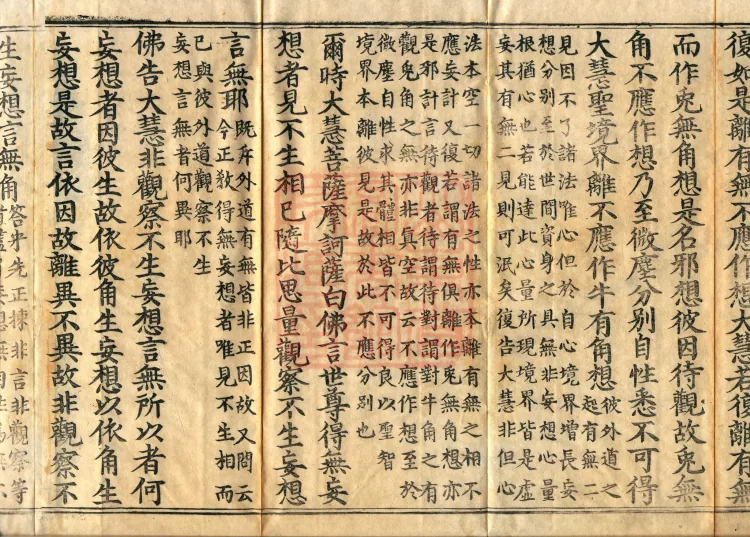 復如是離有無不應作想大慧若復離有無
而作兔無角想是名邪想彼因待觀故兔無
角不應作想乃至微塵分別自性悉不可得
大慧聖境界離不應作牛有角想彼外道之
起有無二
見因不了諸法唯心但於自心境界增長妄
想分別至於世間資身之具無非妄想心量
根猶心也若能達此心量所現境界皆是虛
妄其有無二見則可泯矣復告大慧非但心
法本空一切諸法之性亦本離有無之相不
應妄計又復若謂有無俱離作兔無角想亦
是邪計言待觀者待謂待對謂對牛角之有
觀兔角之無亦非真空故云不應作想至於
微塵自性求其體相皆不可得良以聖智
境界本離彼見是故於此不應分別也
爾時大慧菩薩摩訶薩白佛言世尊得無妄
想者見不生相已隨比思量觀察不生妄想
言無耶既斥外道有無皆非正因故又問云
令正教得無妄想者唯見不生相而
已與彼外道觀察不生
妄想言無者何異耶
佛告大慧非觀察不生妄想言無所以者何
妄想者因彼生故依彼角生妄想以依角生
妄想是故言依因故離異不異故非觀察不
生妄想言無角答中先正揀非言非觀察等